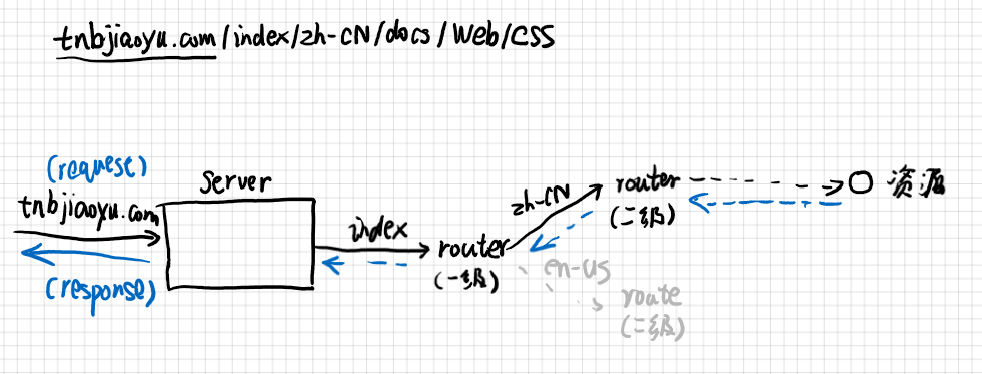 tnbjiaoyu.com/index/zh-CN/docs/Web/CSS
(requese)
tnbjiaoyu.com
(response)
Server
index
router
(一级)
zh-CN
router
(二级)
en-us
route
(二级)
资源